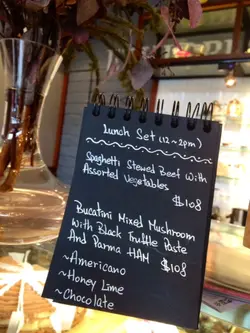 Lunch Set (12~2pm)
Spaghetti Stewed Beef With
Assorted Vegetables
$108
Bucatini Mixed Mushroom
With Black Truffle Paste
And Parma HAM $108
~Americano
~Honey Lime
~Chocolate